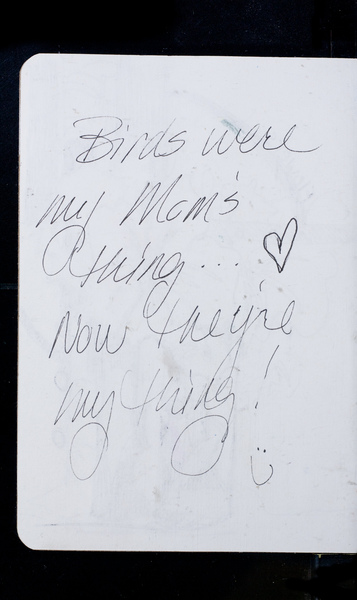 Birds were
my Mom's
thing...
Now they're
my thing!